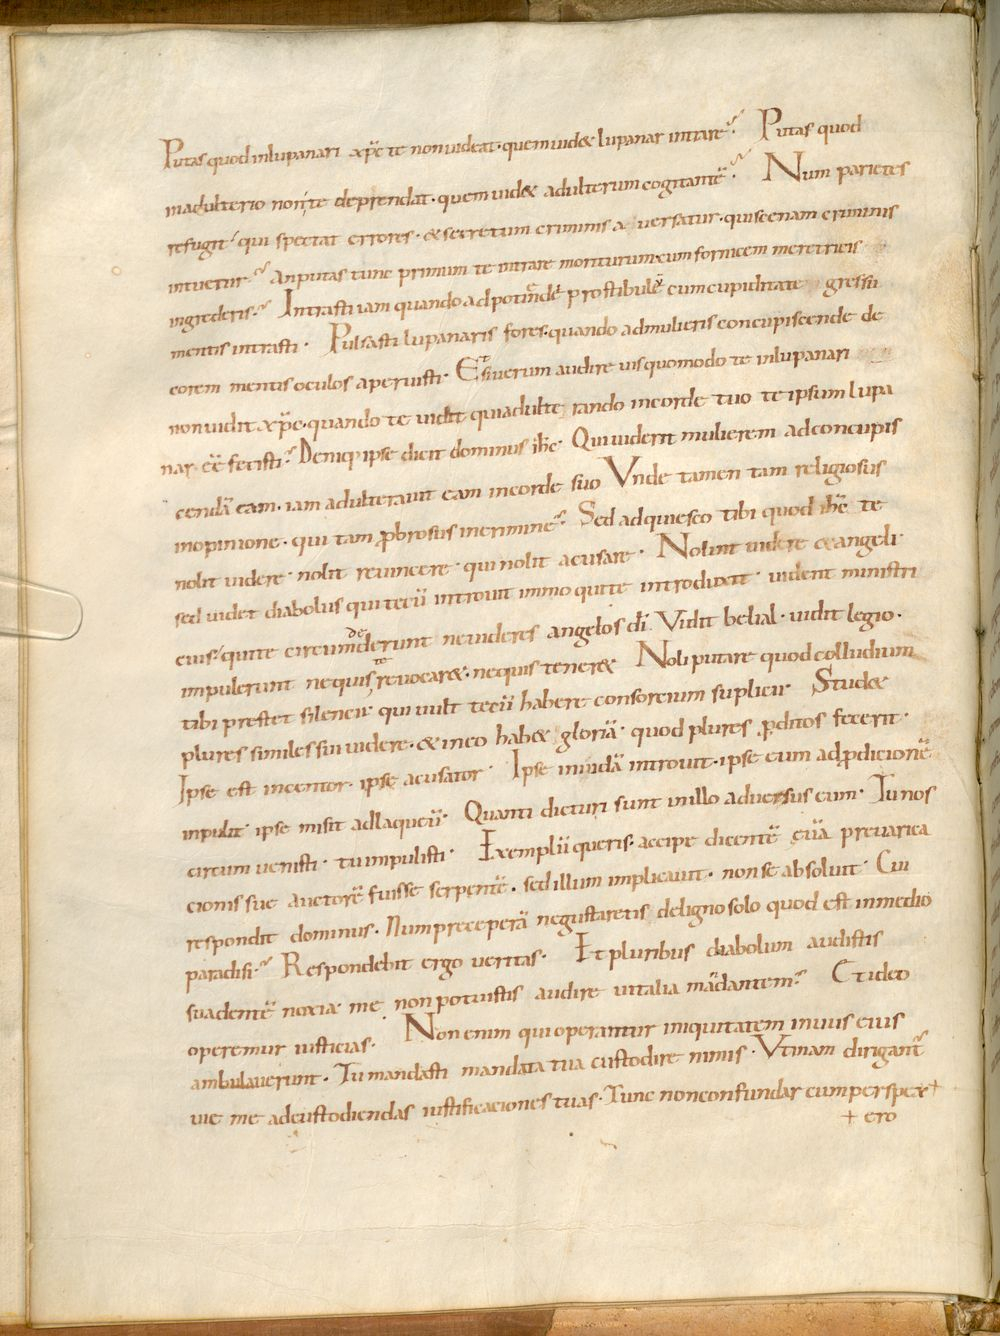 Putas quod inlupanari xp̄c te non uideat· quem uid& lupanar intrare? Putas quod
inadulterio non te deprendat· quem uid& adulterum cogitantē? Num parietes
refugit qui spectat errores· & secretum criminis auersatur· qui scenam criminis
intuetur? An putas tunc primum te intrare moriturum cum fornicem meretricis
ingrederis? Intrasti iam quando ad prostibulū cum cupiditate gressu
mentis intrasti· Pulsasti lupanaris fores· quando admulieris concupiscende de
corem mentis oculos aperuisti· Et si uerum audire uis quomodo te inlupanari
non uidit xp̄c· quando te uidit qui adulterando incorde tuo te ipsum lupa
nar eē fecisti? Deniq; ipse dicit dominus ihc̄· Qui uiderit mulierem adconcupis
cendā eam· iam adulterauit eam incorde suo Vnde tamen tam religiosus
inopinione· qui tam ꝓbrosus incrimine? Sed adquiesco tibi quod ihc̄ te
nolit uidere· nolit reuincere· qui nolit acusare· Nolint uidere & angeli·
sed uidet diabolus qui tecū introiuit immo qui te introduxit· uident ministri
eius qui te circumdederunt ne uideres angelos dī· Vidit belial· uidit legio·
impulerunt nequis te reuocar&· nequis tener& Noli putare quod colludium
tibi prestet silencii· qui uult tecū habere consorcium suplicii· Stud&
plures similes sui uidere· & in eo hab& gloriā· quod plures ꝓditos fecerit·
Ipse est incentor· ipse acusator· Ipse iniudā introiuit· ipse eum adꝓdicionē
inpulit· ipse misit adlaqueū· Quanti dicturi sunt inillo aduersus eum· Tu nos
circum uenisti· tu impulisti· Exemplū queris· accipe dicentē euā preuarica
cionis sue auctorē fuisse serpentē· sed illum implicauit· non se absoluit· Cui
respondit dominus· Num preceperā negustaretis deligno solo quod est inmedio
paradisi? Respondebit ergo ueritas· Et pluribus diabolum audistis
suadentē noxia me non potuistis audire uitalia mādantem? Et ideo
operemur iusticias· Non enim qui operantur iniquitatem inuiis eius
ambulauerunt· Tu mandasti mandata tua custodire nimis· Vtinam dirigant̄
uie me adcustodiendas iustificaciones tuas· Tunc non confundar cum perspex+
+ ero